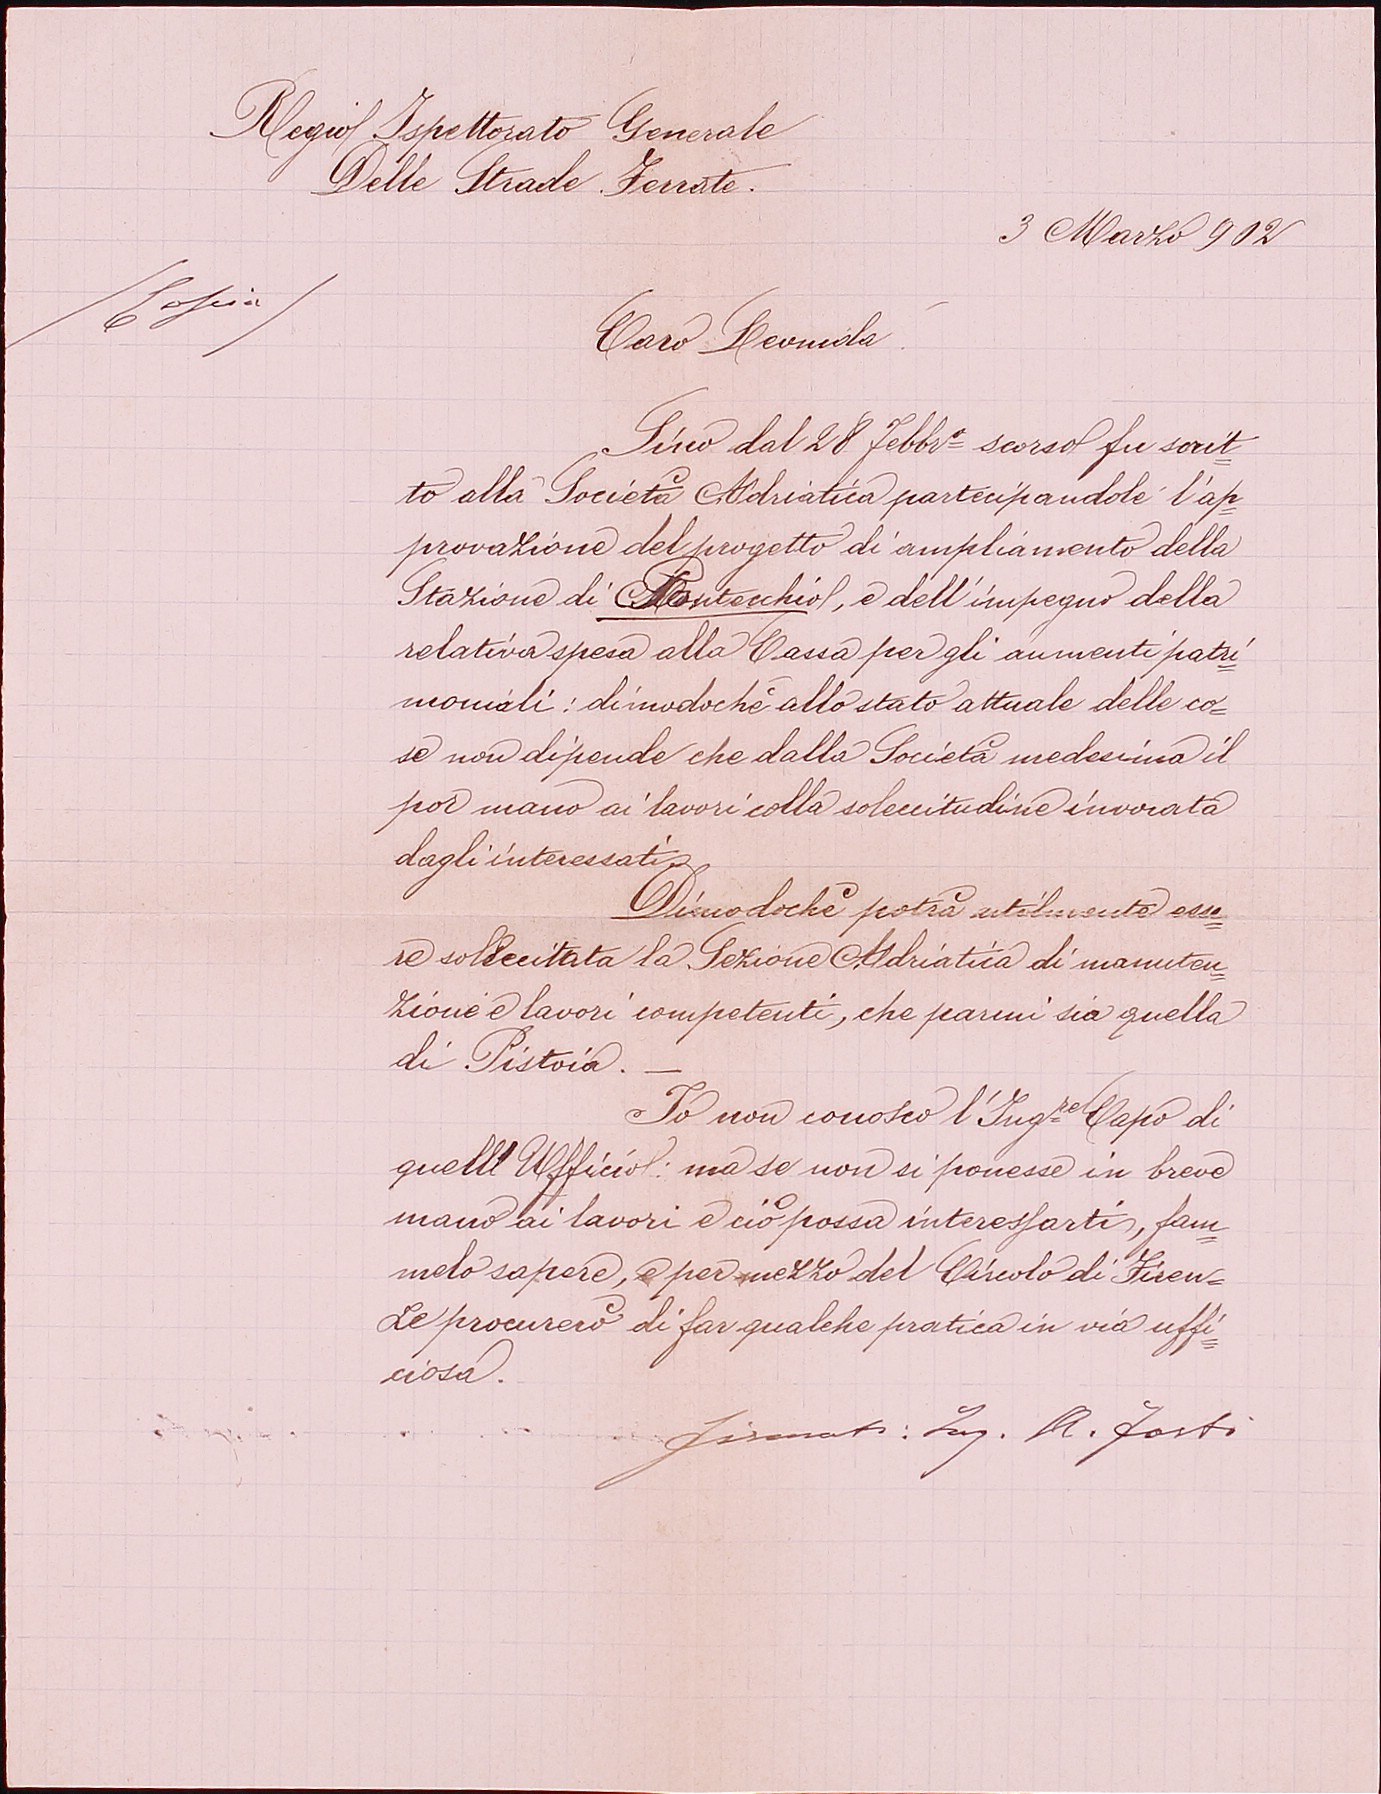 Regio Ispettorato Generale
Delle Strade Ferrate.
3 Marzo 902
/Copia/
Caro Leonida
Sino dal 28 Febbr° scorso fu scrit=
to alla Società Adriatica partecipandole l'ap=
provazione del progetto di ampliamento della
Stazione di Montecchio, e dell'impegno della
relativa spesa alla Cassa per gli aumenti patri=
moniali: dimodochè allo stato attuale delle co=
se non dipende che dalla Società medesima il
por mano ai lavori colla solecitudine invocata
dagli interessati.
Dimodochè potrà utilmente esse=
re sollecitata la Sezione Adriatica di manuten=
zione e lavori competenti, che parmi sia quella
di Pistoia. —
Io non conosco l'Ing.re Capo di
quell'Ufficio: ma se non si ponesse in breve
mano ai lavori e ciò possa interessarti, fam=
melo sapere, e per mezzo del Circolo di Firen=
ze procurerò di far qualche pratica in via uffi=
ciosa.
firmato: Ing. A.